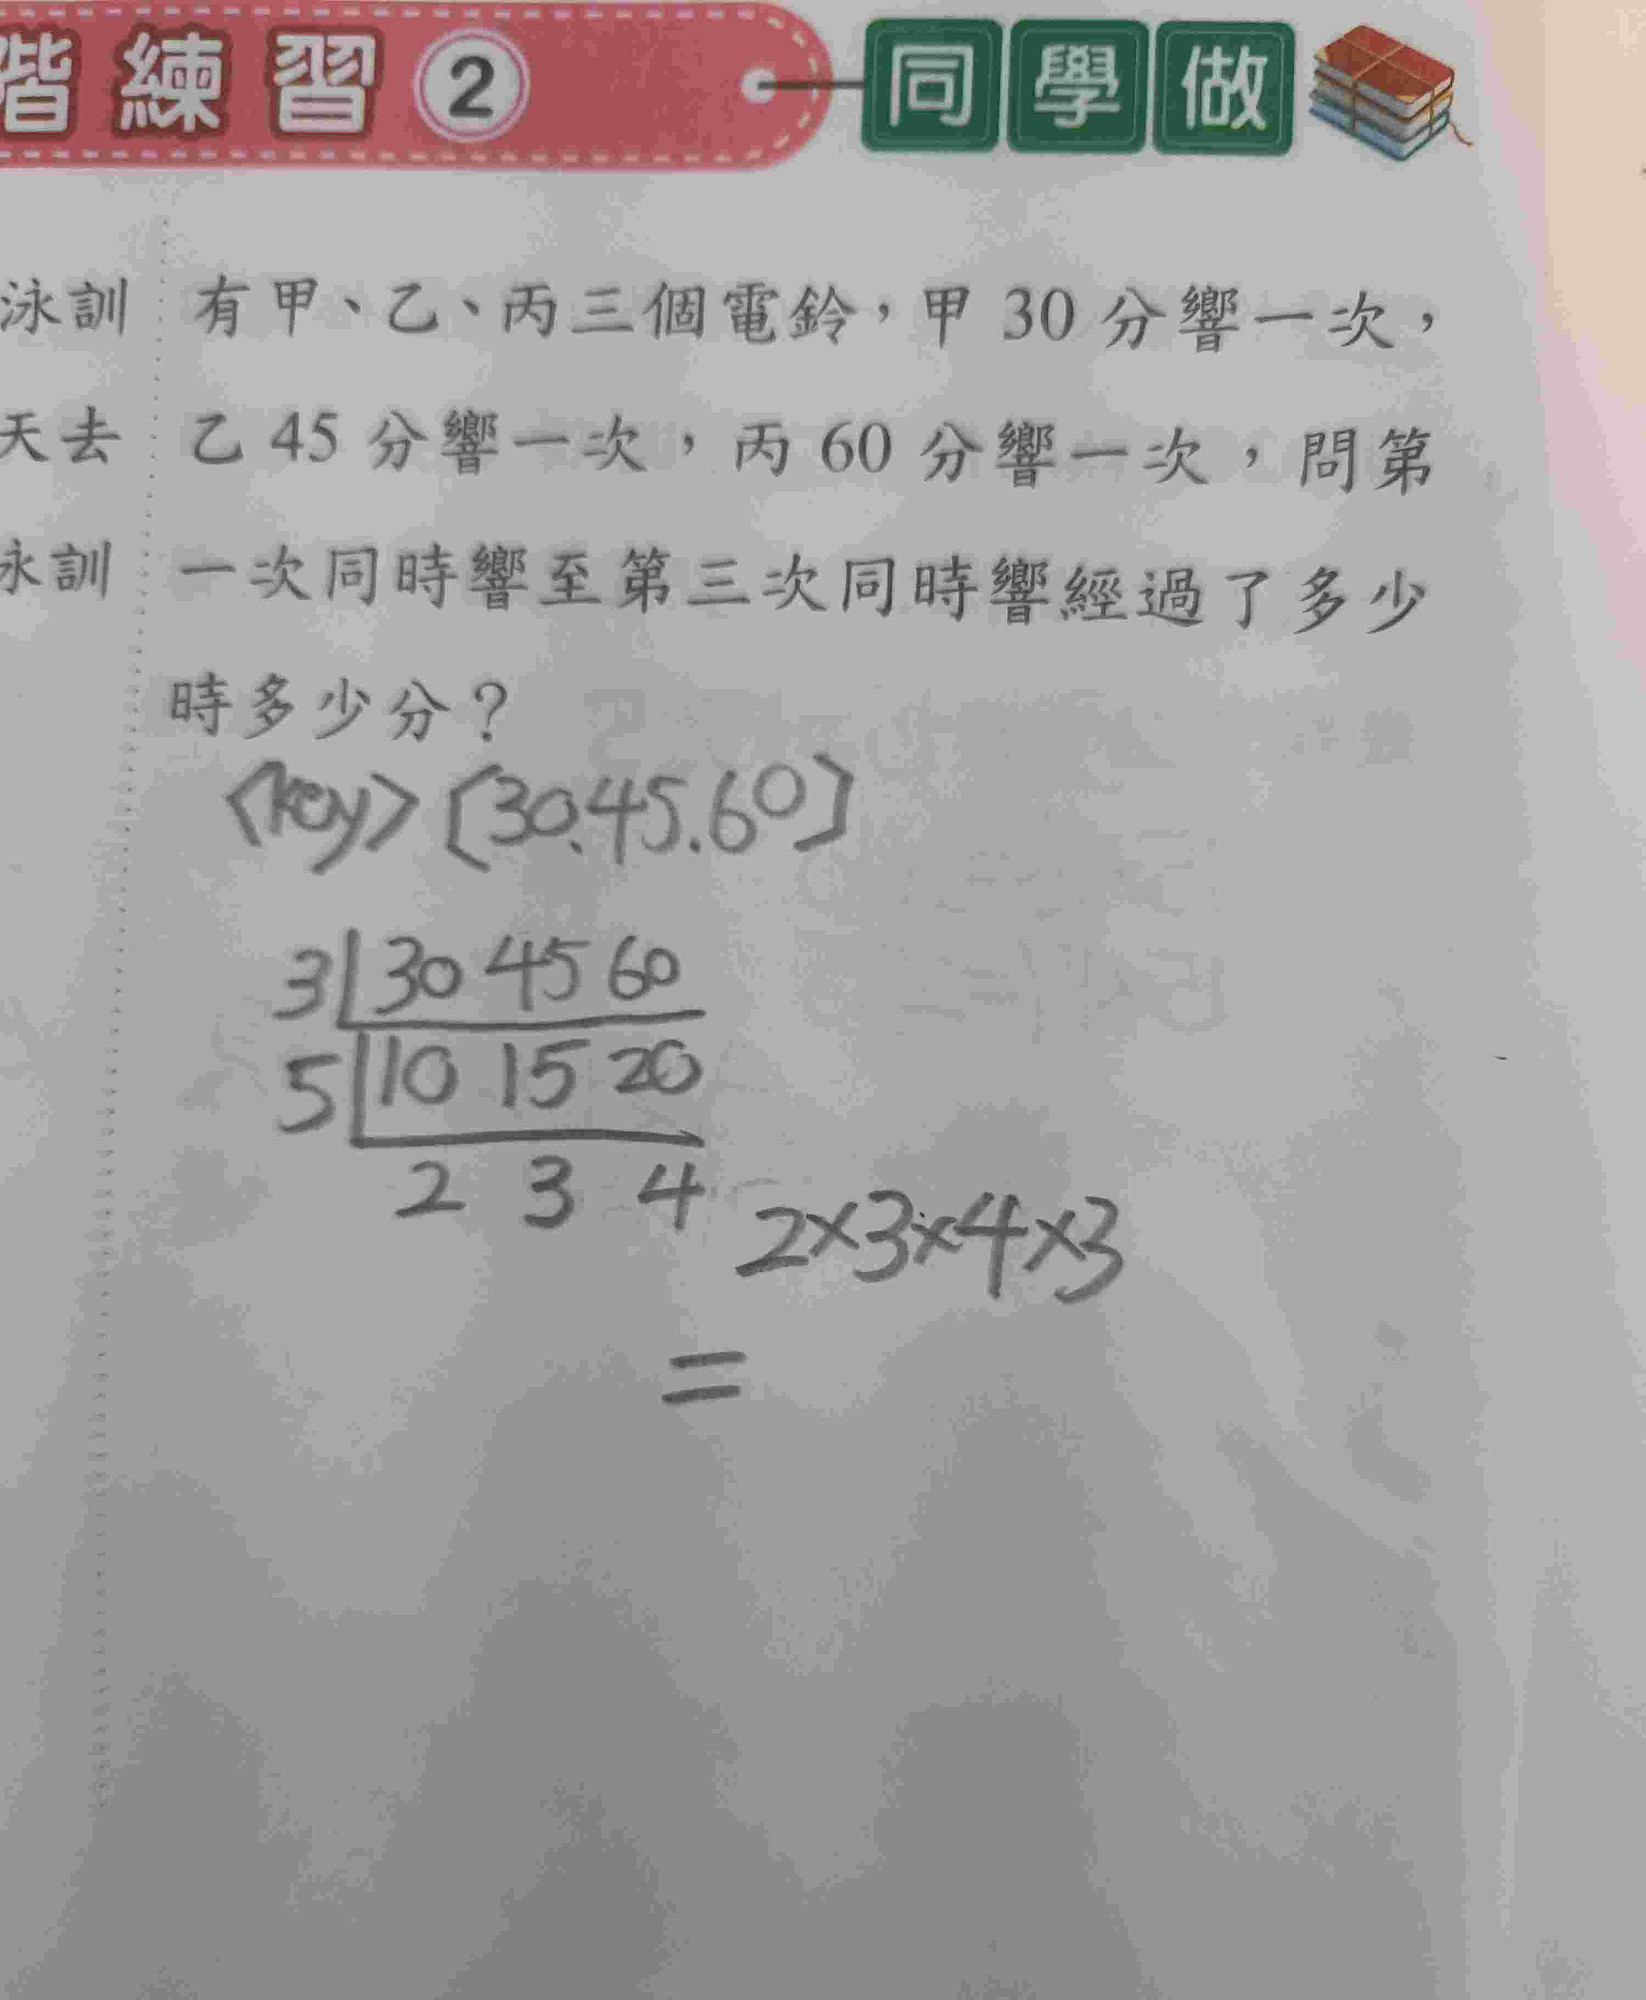 階練習2 同學做
泳訓
天去
泳訓
有甲、乙、丙三個電鈴，甲 30 分響一次，
乙 45 分響一次，丙 60 分響一次，問第
一次同時響至第三次同時響經過了多少
時多少分？
<key> [30.45.60]
3 30 45 60
5 10 15 20
2 3 4
2×3×4×3
=